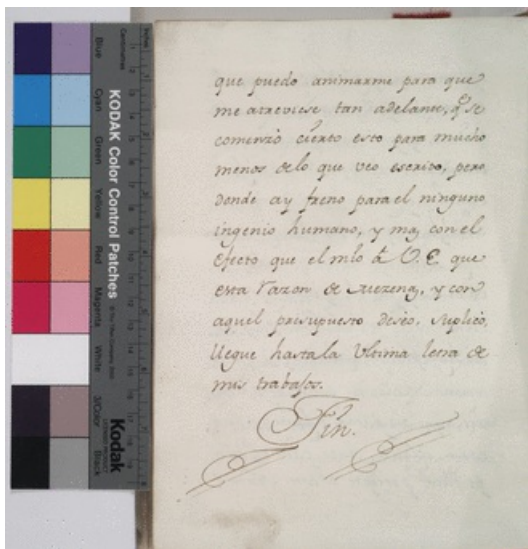 Blue
Cyan
Green
Yellow
Red
Magenta
White
3/Color
Black
KODAK Color Control Patches
Kodak
Centimetres
Inches
que puedo animarme para que
me atreviese tan adelante, q̃ se
comenzó cierto esto para mucho
menos de lo que veo escrito, pero
donde ay freno para el ninguno
ingenio humano, y mas con el
efecto que el mío â V. E que
esta razon de
y con
aquel presupuesto deseo, suplico,
llegue hasta la Ultima letra de
mis trabajos.
Fin.